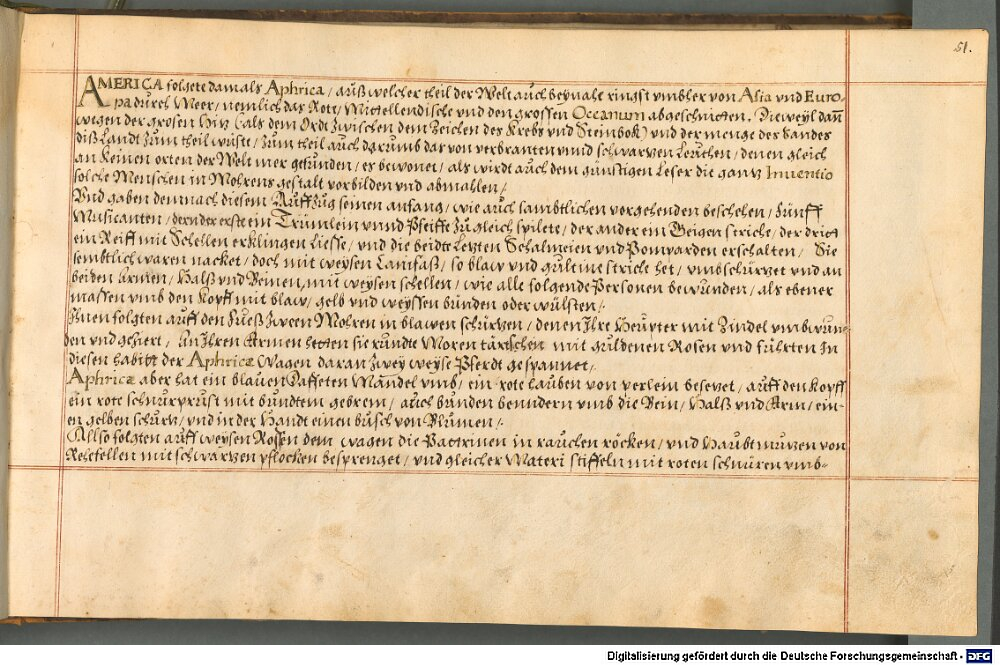 51.
AMERICA folgete damals Aphrica / auß welcher theil der Welt auch beynahe ringst vmbher von Asia vnd Euro-
pa durch Meer / nemlich das Rott / Mittellendische vnd den grossen Oceanum abgeschnitten. Dieweyl dan̄
wegen der grosen Hitz (als dem Ordt zwischen dem Zeichen des Krebs vnd Steinbok) vnd der menge des Sandes
diß Landt zum theil wüste / zum theil auch darumb das von verbranten vnnd schwartzen Leuthen / denen gleich
an keinen orten der Welt mer gefunden / es bewonet / als wirdt auch dem günstigen Leser die gantz Inuentio
solche Menschen in Mohrens gestalt vorbilden vnd abmahlen /.
Vnd gaben demnach diesem Auffzug seinen anfang / wie auch sambtlichen vorgehenden beschehen / Fünff
Musicanten / deren der erste ein Trümlein vnnd Pfeiffe zu gleich spilete / der ander ein Geigen striche / der dritt
ein Reiff mit Schellen erklingen liesse / vnd die beidte letzten Schalmeien vnd Pomparden erschalten / Sie
sembtlich waren nacket / doch mit weysen Canifaß / so blaw vnd gultine strich het / vmbschürtzet vnd an
beiden Armen / Halß vnd Beinen, mit weysen schellen / wie alle folgende Personen bewunden / als ebener
massen vmb den Kopff mit blaw / gelb vnd weyssen bünden oder wülsten /.
Ihnen folgten auff den Fueß zween Mohren in blawen schürtzen / denen Ihre Heupter mit Zindel vmbwun-
den vnd gehiert / An Ihren Armen hetten sie rundte Moren tartschen mit guldenen Rosen vnd führten In
diesen habitt der Aphricæ Wagen daran zwey weyse Pferdt gespannet /.
Aphricæ aber hat ein blauen Daffeten Mändel vmb / ein rote hauben von perlein besetzet / auff den Kopff
ein rote schnurpxust mit bundtem gebrem / auch bünden benndern vmb die Bein / Halß vnd Arm / ein-
en gelben schurtz / vnd in der Handt einen busch von Blumen /.
Allso folgten auff weysen Rossen dem wagen die Pactrinen in rauchen röcken / vnd Haubtmutzen von
Rehefellen mit schwartzen pflocken besprenget / vnd gleicher Materi stiffeln mit roten schnüren vmb-
Digitalisierung gefördert durch die Deutsche Forschungsgemeinschaft - DFG